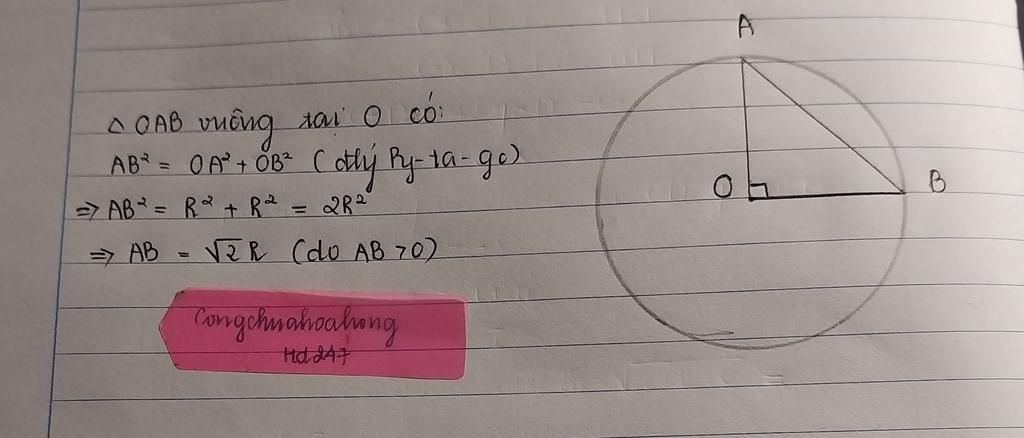 △ OAB vuông tại O có:
AB² = OA² + OB² (đlý Py-ta-go)
=> AB² = R² + R² = 2R²
=> AB = √2 R (do AB > 0)
Congchuahoahong
Hd247
A
O
B